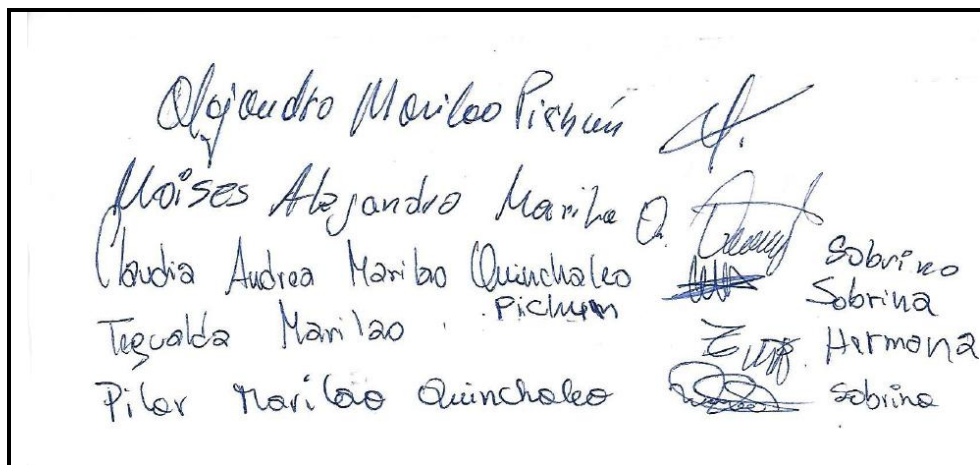 Alejandro Marilao Pichún
Moises Alejandro Marilao Q. Sobrino
Claudia Andrea Marilao Quinchaleo Sobrina
Tegualda Marilao Pichun Hermana
Pilar Marilao Quinchaleo Sobrina